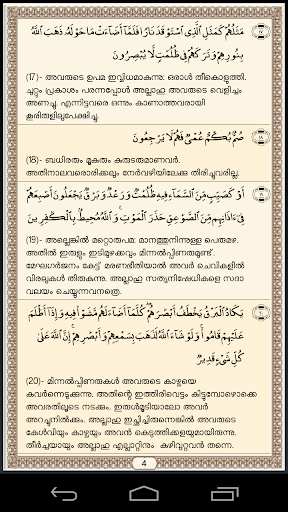 مَثَلُهُمْ كَمَثَلِ ٱلَّذِى ٱسْتَوْقَدَ نَارًا فَلَمَّآ أَضَآءَتْ مَا حَوْلَهُۥ ذَهَبَ ٱللَّهُ
بِنُورِهِمْ وَتَرَكَهُمْ فِى ظُلُمَٰتٍ لَّا يُبْصِرُونَ
(17)- അവരുടെ ഉപമ ഇവ്വിധമാകുന്നു: ഒരാള്‍ തീകൊളുത്തി.
ചുറ്റും പ്രകാശം പരന്നപ്പോള്‍ അല്ലാഹു അവരുടെ വെളിച്ചം
അണച്ചു. എന്നിട്ടവരെ ഒന്നും കാണാത്തവരായി
കൂരിരുളിലുപേക്ഷിച്ചു.
صُمٌّۢ بُكْمٌ عُمْىٌ فَهُمْ لَا يَرْجِعُونَ
(18)- ബധിരരും മൂകരും കുരുടരുമാണവര്‍.
അതിനാലവരൊരിക്കലും നേര്‍വഴിയിലേക്കു തിരിച്ചുവരില്ല.
أَوْ كَصَيِّبٍ مِّنَ ٱلسَّمَآءِ فِيهِ ظُلُمَٰتٌ وَرَعْدٌ وَبَرْقٌ يَجْعَلُونَ أَصَٰبِعَهُمْ
فِىٓ ءَاذَانِهِم مِّنَ ٱلصَّوَٰعِقِ حَذَرَ ٱلْمَوْتِ ۚ وَٱللَّهُ مُحِيطٌۢ بِٱلْكَٰفِرِينَ
(19)- അല്ലെങ്കില്‍ മറ്റൊരുപമ: മാനത്തുനിന്നുള്ള പെരുമഴ.
അതില്‍ ഇരുളും ഇടിമുഴക്കവും മിന്നല്‍പ്പിണരുമുണ്ട് .
മേഘഗര്‍ജനം കേട്ട് മരണഭീതിയാല്‍ അവര്‍ ചെവികളില്‍
വിരലുകള്‍ തിരുകുന്നു. അല്ലാഹു സത്യനിഷേധികളെ സദാ
വലയം ചെയ്യുന്നവനത്രെ.
يَكَادُ ٱلْبَرْقُ يَخْطَفُ أَبْصَٰرَهُمْ ۖ كُلَّمَآ أَضَآءَ لَهُم مَّشَوْا۟ فِيهِ وَإِذَآ أَظْلَمَ
عَلَيْهِمْ قَامُوا۟ ۚ وَلَوْ شَآءَ ٱللَّهُ لَذَهَبَ بِسَمْعِهِمْ وَأَبْصَٰرِهِمْ ۚ إِنَّ ٱللَّهَ عَلَىٰ
كُلِّ شَىْءٍ قَدِيرٌ
(20)- മിന്നല്‍പ്പിണരുകള്‍ അവരുടെ കാഴ്ചയെ
കവര്‍ന്നെടുക്കുന്നു. അതിന്റെ ഇത്തിരിവെട്ടം കിട്ടുമ്പോഴൊക്കെ
അവരതിലൂടെ നടക്കും. ഇരുള്‍മൂടിയാലോ അവര്‍
അറച്ചുനില്‍ക്കും. അല്ലാഹു ഇച്ഛിച്ചിരുന്നെങ്കില്‍ അവരുടെ
കേള്‍വിയും കാഴ്ചയും അവന്‍ കെടുത്തിക്കളയുമായിരുന്നു.
തീര്‍ച്ചയായും അല്ലാഹു എല്ലാറ്റിനും കഴിവുറ്റവന്‍ തന്നെ.
4